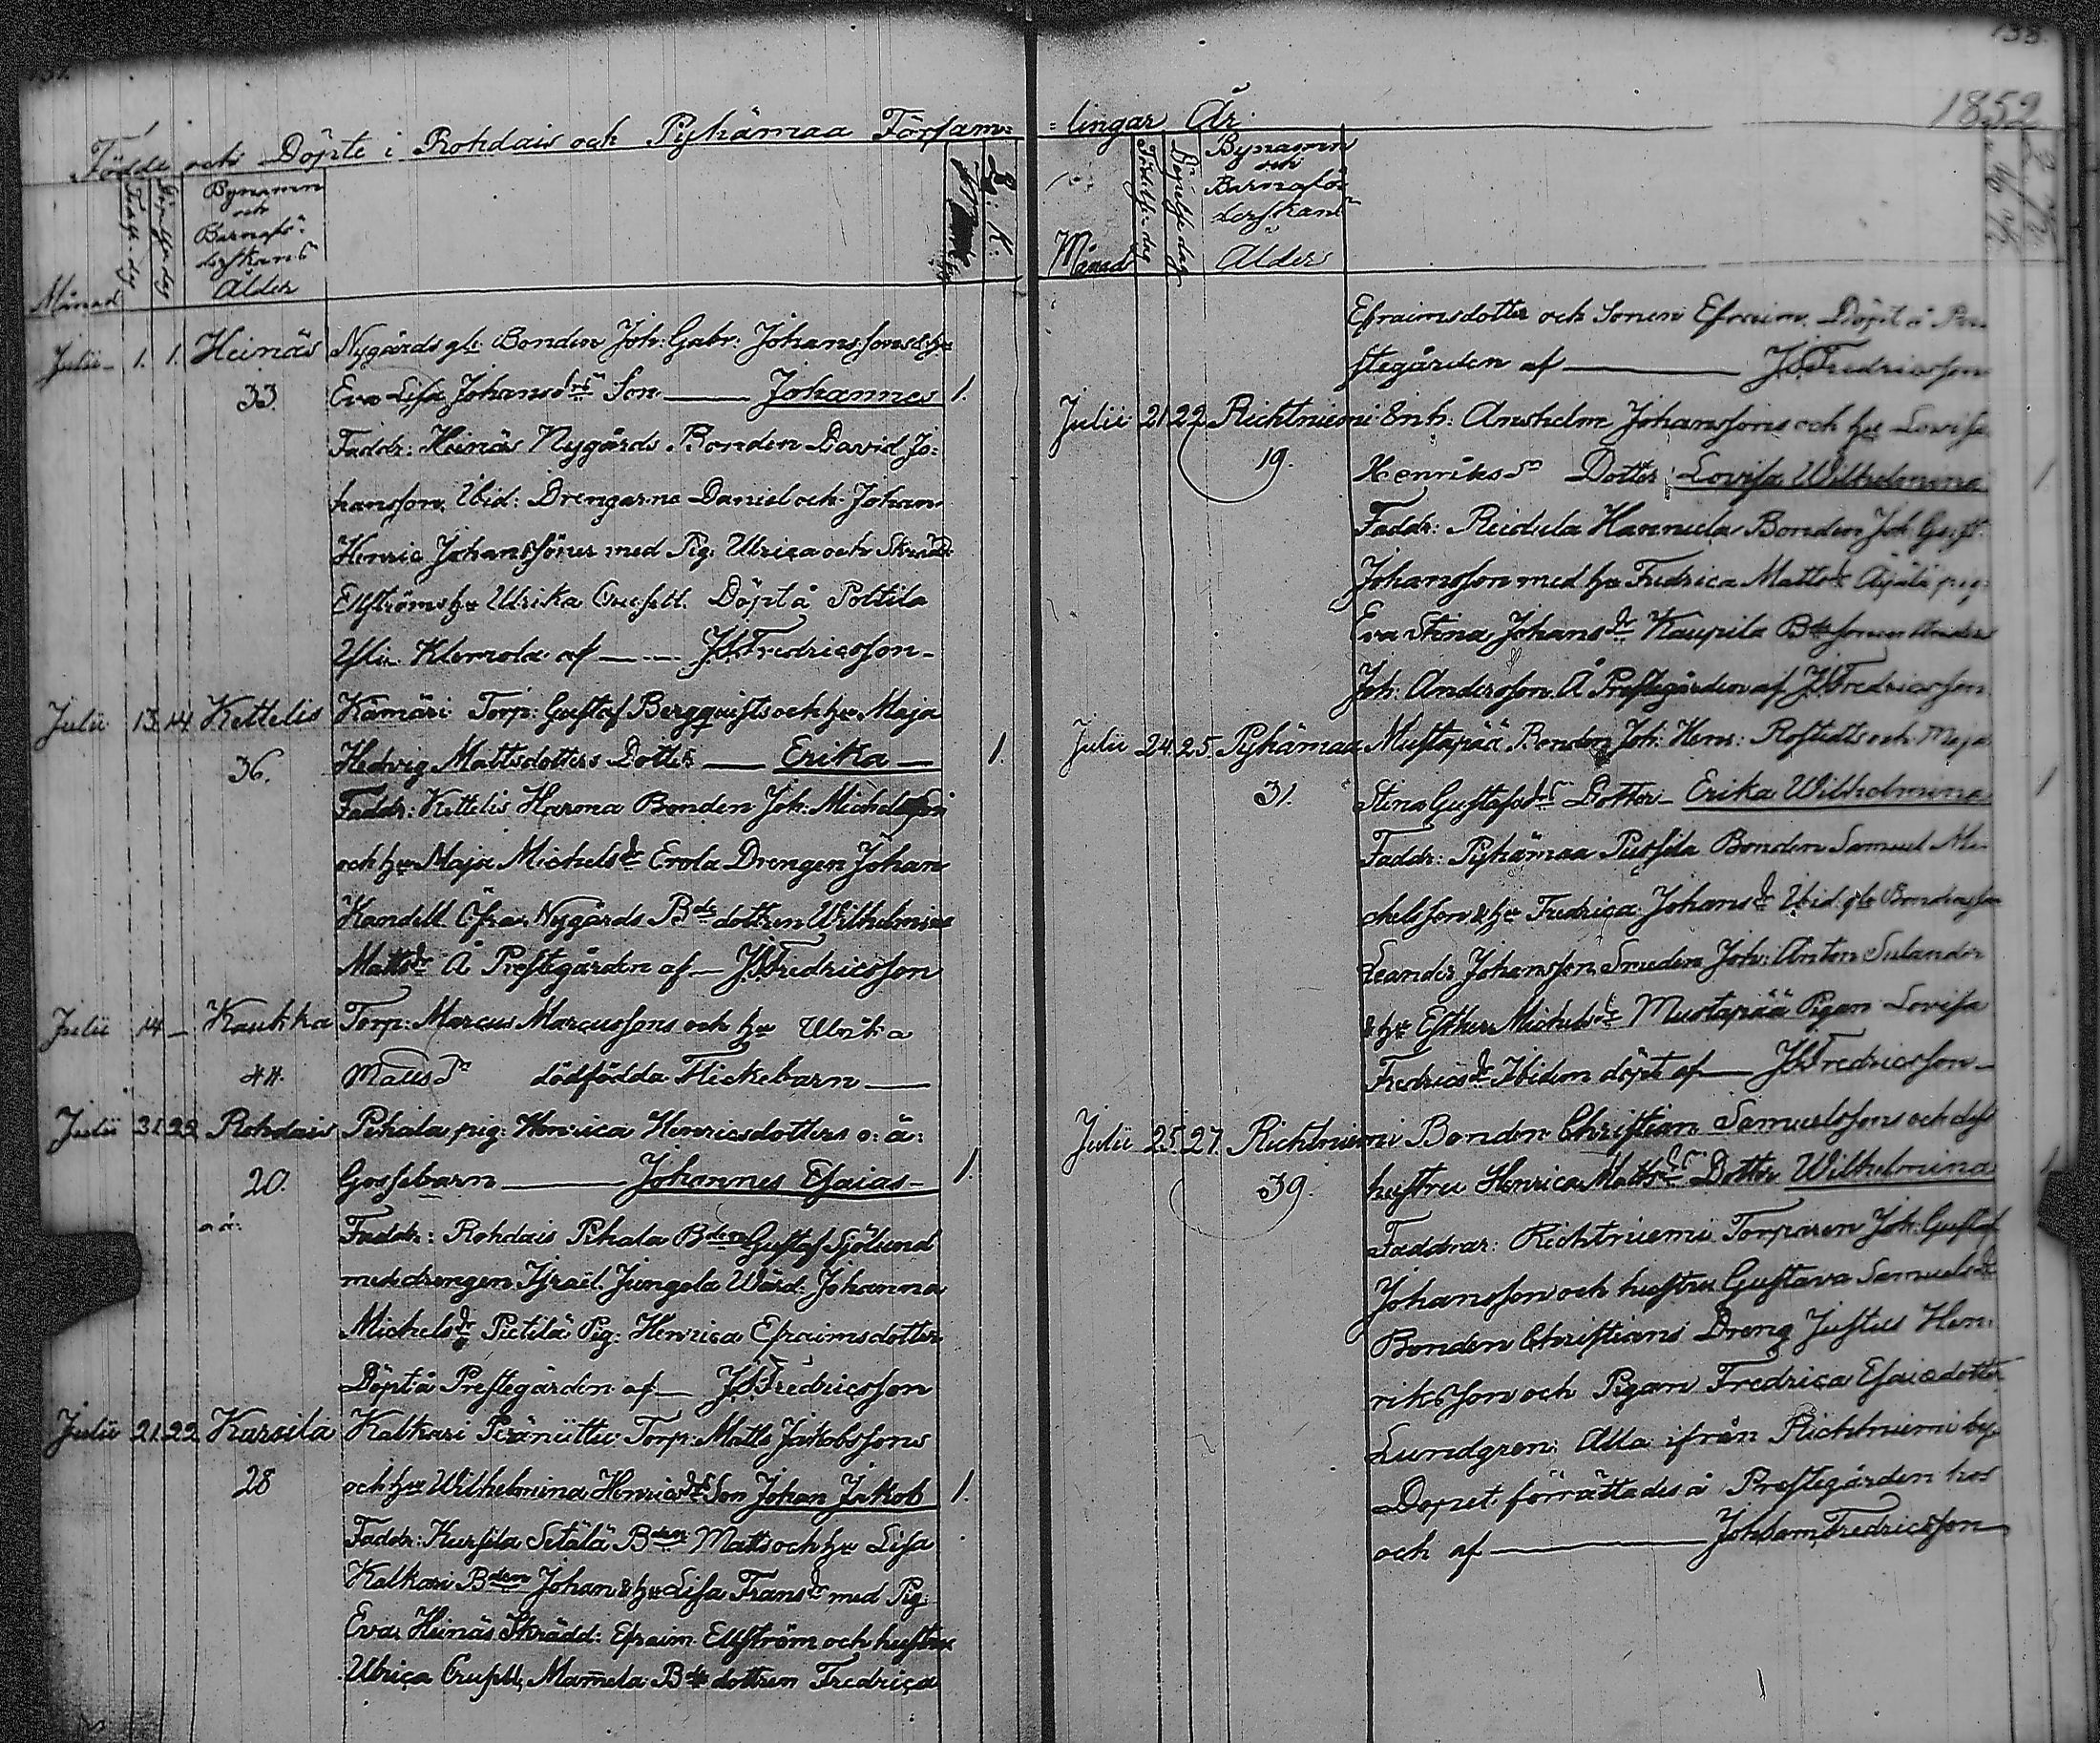 133.
1852
Födde och Döpte i Rohdais och Pyhämaa Försam=
Månad
Födelse-dag
Döpelse dag
Bynamn
och
Barnafö-
derskans
Ålder
Julii 1. 1. Heinäs Nygårds gle Bonden Joh: Gabr: Johanssons & hu
33. Eva Lisa Johansdrs Son — Johannes 1.
Faddr: Heinäs Nygårds Bonden David Jo:
hansson, Ibid: Drengarne Daniel och Johan
Henric Johanssöner med Pig: Ulrica och Skrädd:
Ellströms hu Ulrika Döpt å Poltila
Klemola af — JSFredricsson
Julii 13. 14. Kettelis Kämäri Torp: Gustaf Bergquists och hu Maja
36. Hedvig Mattsdotters Dotter — Erika — 1.
Faddr: Kettelis Harona Bonden Joh: Michelsson
och hu Maja Michelsdr Erola Drengen Johan
Kandell Öfra Nygårds Bde dottren Wilhelmina
Mattsdr Å Prestegården af — JSFredricsson
Julii 14 — Kaukka Torp: Marcus Marcussons och hu Ulrika
44. Mattsdr dödfödda Flickebarn —
Julii 21. 22 Rohdais Pihala pig: Henrica Henricsdotters o: ä:
20. Gossebarn — Johannes Esaias — 1.
o ä: Faddr: Rohdais Pihala Bden Gustaf Sjölund
med drengen Israel. Jungola Wärd: Johanna
Michelsdr Pietilä Pig: Henrica Efraimsdotter
Döpt å Prestegården af — JSFredricsson
Julii 21. 22 Kursila Kalkari Torp: Matts Jakobssons
28 och hu Wilhelmina Henricsdrs Son Johan Jakob 1.
Faddr: Kursila Setälä Bden Matts och hu Lisa
Kalkari Bden Johan & hu Lisa Fransdr med Pig:
Eva, Heinäs Skrädd: Efraim Ellström och hustru
Ulrica Mamela Bde dottren Fredrica
=lingar År
Månad
Födelse-dag
Döpelse dag
Bynamn
och
Barnafö-
derskans
Ålder
Efraimsdotter och Sonen Efraim. Döpt å Pre-
stegården af — JSFredricsson
Julii 21 22 Richtniemi Inh: Anshelm Johanssons och hu Lovisa
19. Henriksdr Dotter: Lovisa Wilhelmina 1
Faddr: Reidula Hannula Bonden Joh: Gust:
Johansson med hu Fredrica Mattsdr Äijälä pig:
Eva Stina Johansdr Kaupila Bde sonen Anders
Joh: Andersson. Å Prestegården af JSFredricsson
Julii 24. 25. Pyhämaa Mustapää Bonden Joh: Henr: Rostedts och Maja
31. Stina Gustafsdrs Dotter — Erika Wilhelmina 1
Faddr: Pyhämaa Pussila Bonden Samuel Mi-
chelsson & hu Fredrica Johansdr Ibid: gle Bondesson
Leander Johansson Smeden Joh: Anton Sulander
& hu Esther Michelsdr Mustapää Pigan Lovisa
Fredricsdr Ibidem döpt af — JSFredricsson —
Julii 25. 27. Richtniemi Bonden Christian Samuelssons och dess
39. hustru Henrica Mattsdrs Dotter Wilhelmina 1
Faddrar: Richtniemi Torparen Joh: Gustaf
Johansson och hustru Gustava Samuelsdr
Bonden Christians Dreng Justus Hen-
riksson och Pigan Fredrica Esaiædotter
Lundgren: Alla ifrån Richtniemi by.
Dopet förrättades å Prestegården hos
och af — Joh Sam Fredricsson